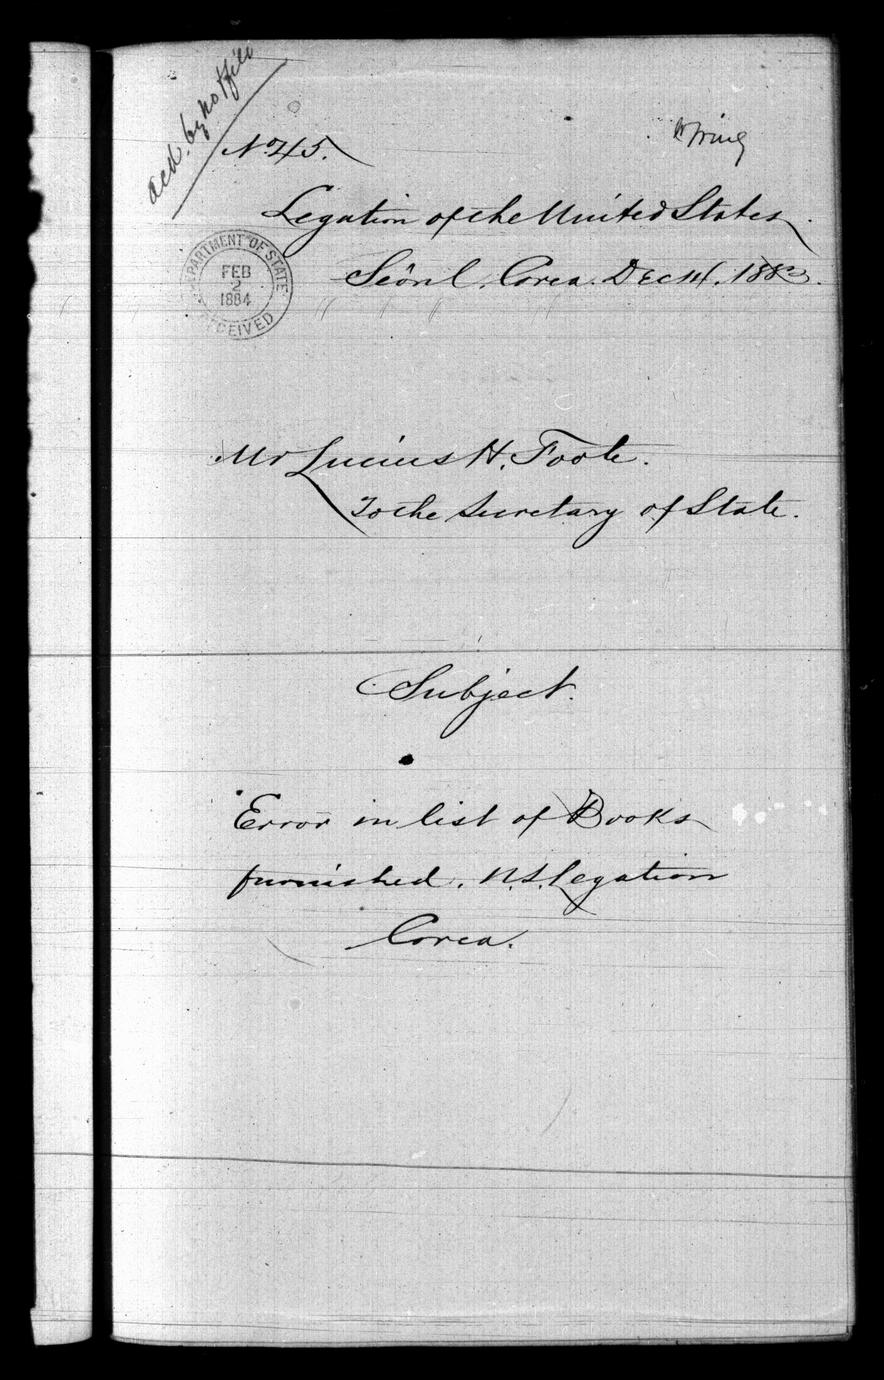 ackd. by
No 45.
Legation of the United States
Seôul, Corea. Dec 14. 1883.
DEPARTMENT OF STATE
FEB
2
1884
RECEIVED
Mr Lucius H. Foote.
To the Secretary of State.
Subject.
Error in list of Books
furnished. U.S. Legation
Corea.